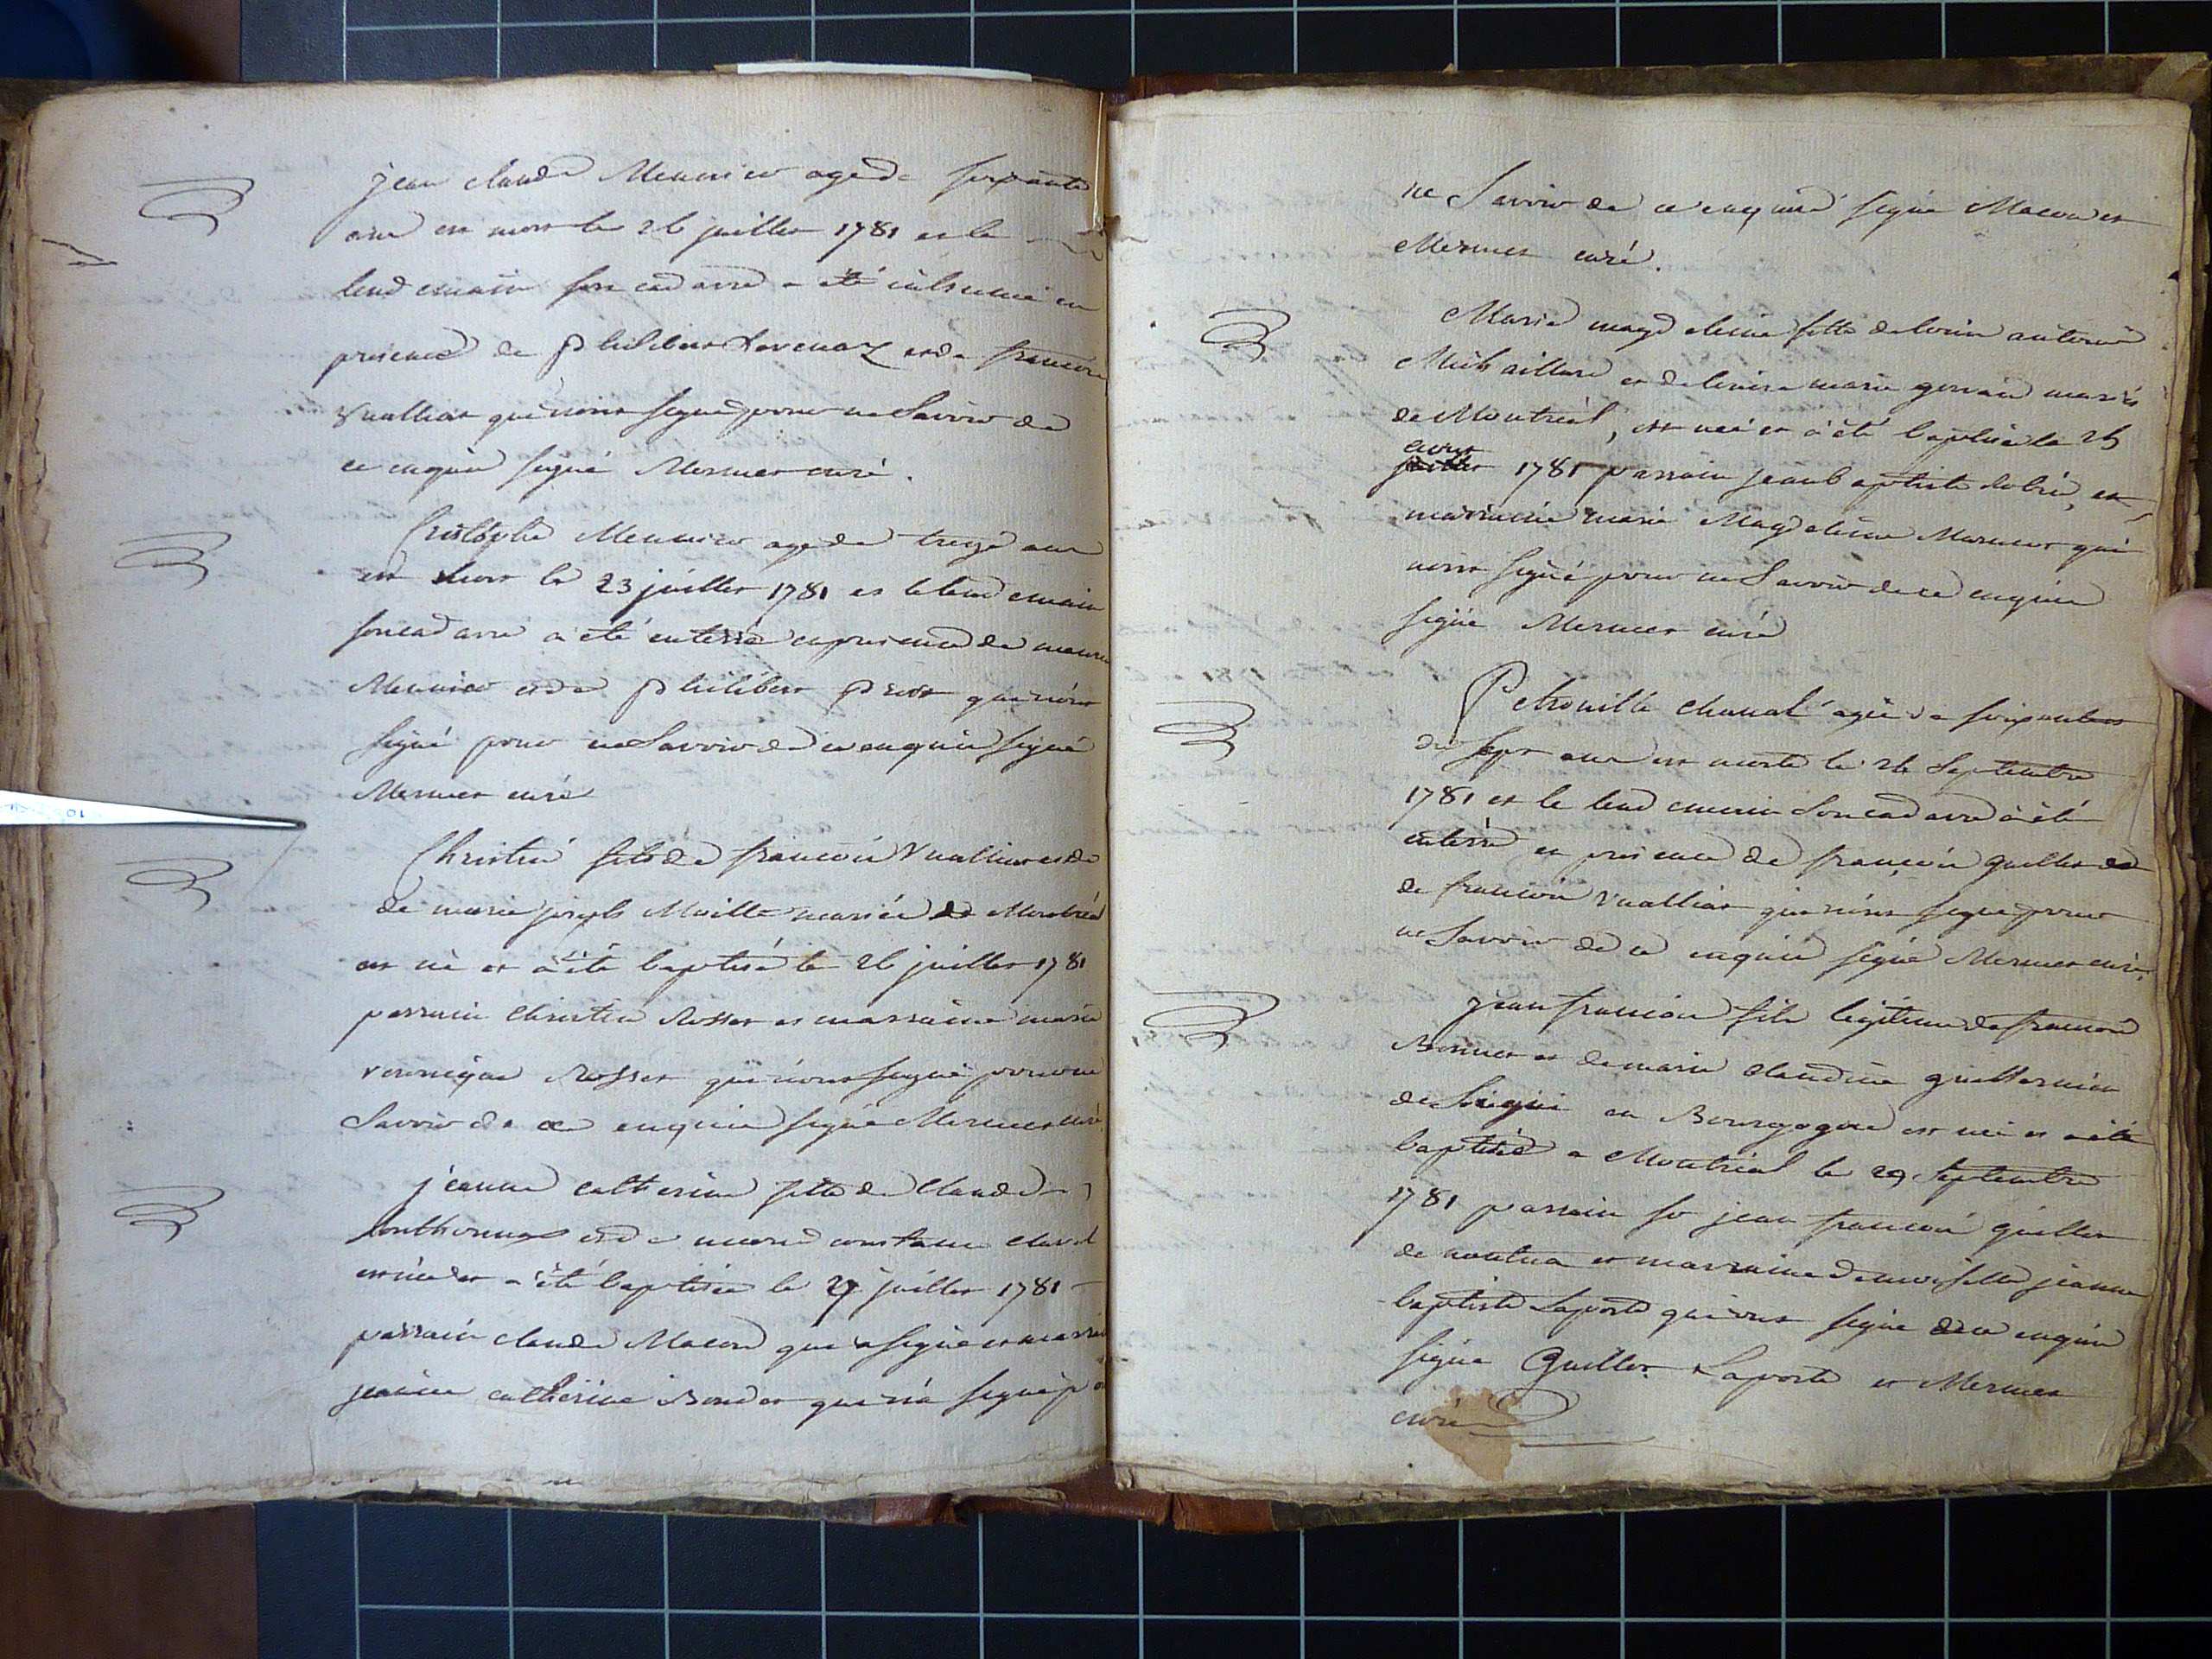 jean claude Meunier agé de soixante
ans est mort le 26 juillet 1781 et le
lendemain son cadavre a été inhumé en
presence de philibert Ravenaz et de francois
Vualliat qui n'ont signé pour ne Savoir de
ce enquis signé Mermet curé.
Cristophe Meunier agé de treize ans
est mort le 23 juillet 1781 et le lendemain
son cadavre a été enterré en presence de
Meunier et de philibert qui n'ont
signé pour ne Savoir de ce enquis signé
Mermet curé
Christin fils de francois Vualliat et de
de marie joseph Maille mariés de Montréal
est né et a été baptisé le 26 juillet 1781
parrain Christin Rosset et marraine marie
veronique Rosset qui n'ont signé pour ne
Savoir de ce enquis signé Mermet curé
jeanne catherine fille de Claude
et de marie constance
est née et a été baptisée le 29 juillet 1781
parrain claude Macon qui a signé et marraine
jeanne catherine Bondet qui n'a signé p
ne Savoir de ce enquis signé Macon et
Mermet curé.
Marie magdeleine fille de
et de marie mariés
de Montréal, est née et a été baptisée le 25
aout 1781 parrain jean baptiste et
marraine marie Magdeleine qui
n'ont signé pour ne Savoir de ce enquis
signé Mermet curé
Petronille Chanal agée de soixante
dix sept ans est morte le 26 Septembre
1781 et le lendemain son cadavre a été
enterré en presence de francois Guillet et
de francois Vualliat qui n'ont signé pour
ne Savoir de ce enquis signé Mermet curé,
jean francois fils légitime de francois
et de marie claudine
de en Bourgogne est né et a été
baptisé a Montréal le 29 Septembre
1781 parrain sr jean francois Guillet
de nantua et marraine demoiselle jeanne
baptiste Laporte qui ont signé de ce enquis
signé Guillet. Laporte et Mermet
curé